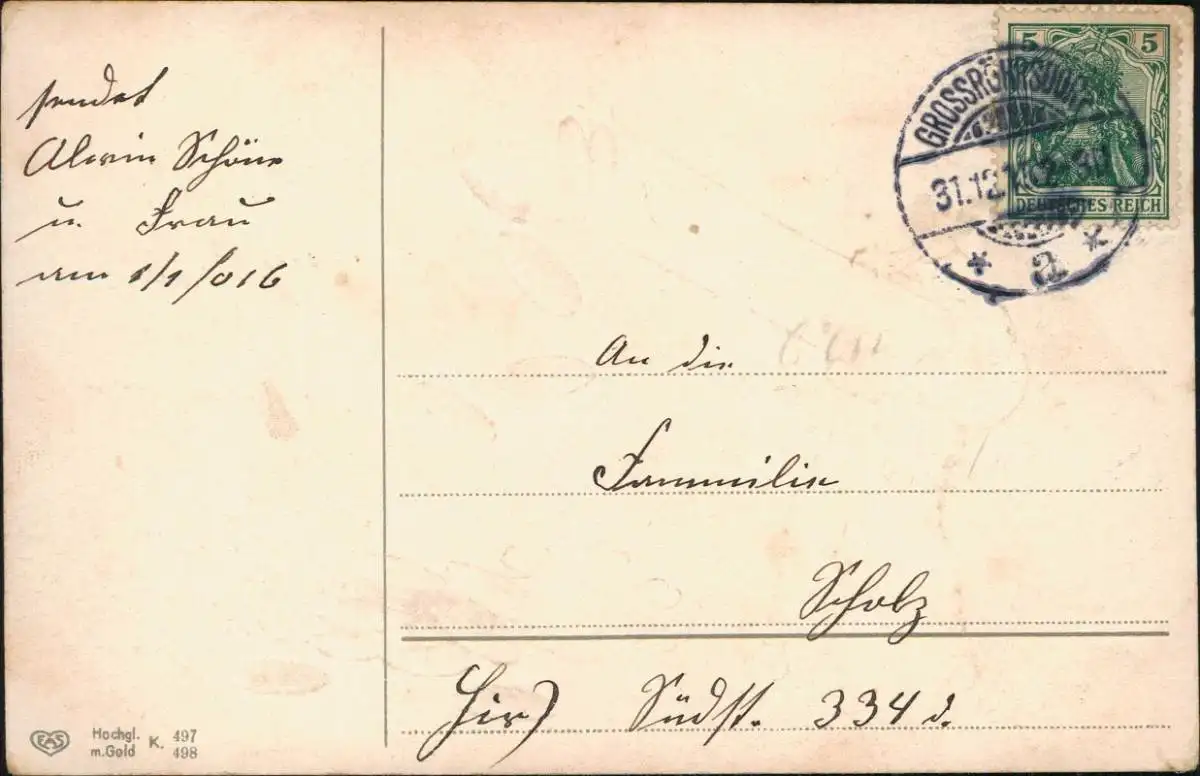 sendet
Alwin Schöne
u. Frau
am 1/1/016
5 5
DEUTSCHES REICH
GROSSRÖHRSDORF
31.12.
* a *
An die
Fammilie
Scholz
Hier
Südst. 334 d.
EAS
Hochgl. m. Gold K. 497 498